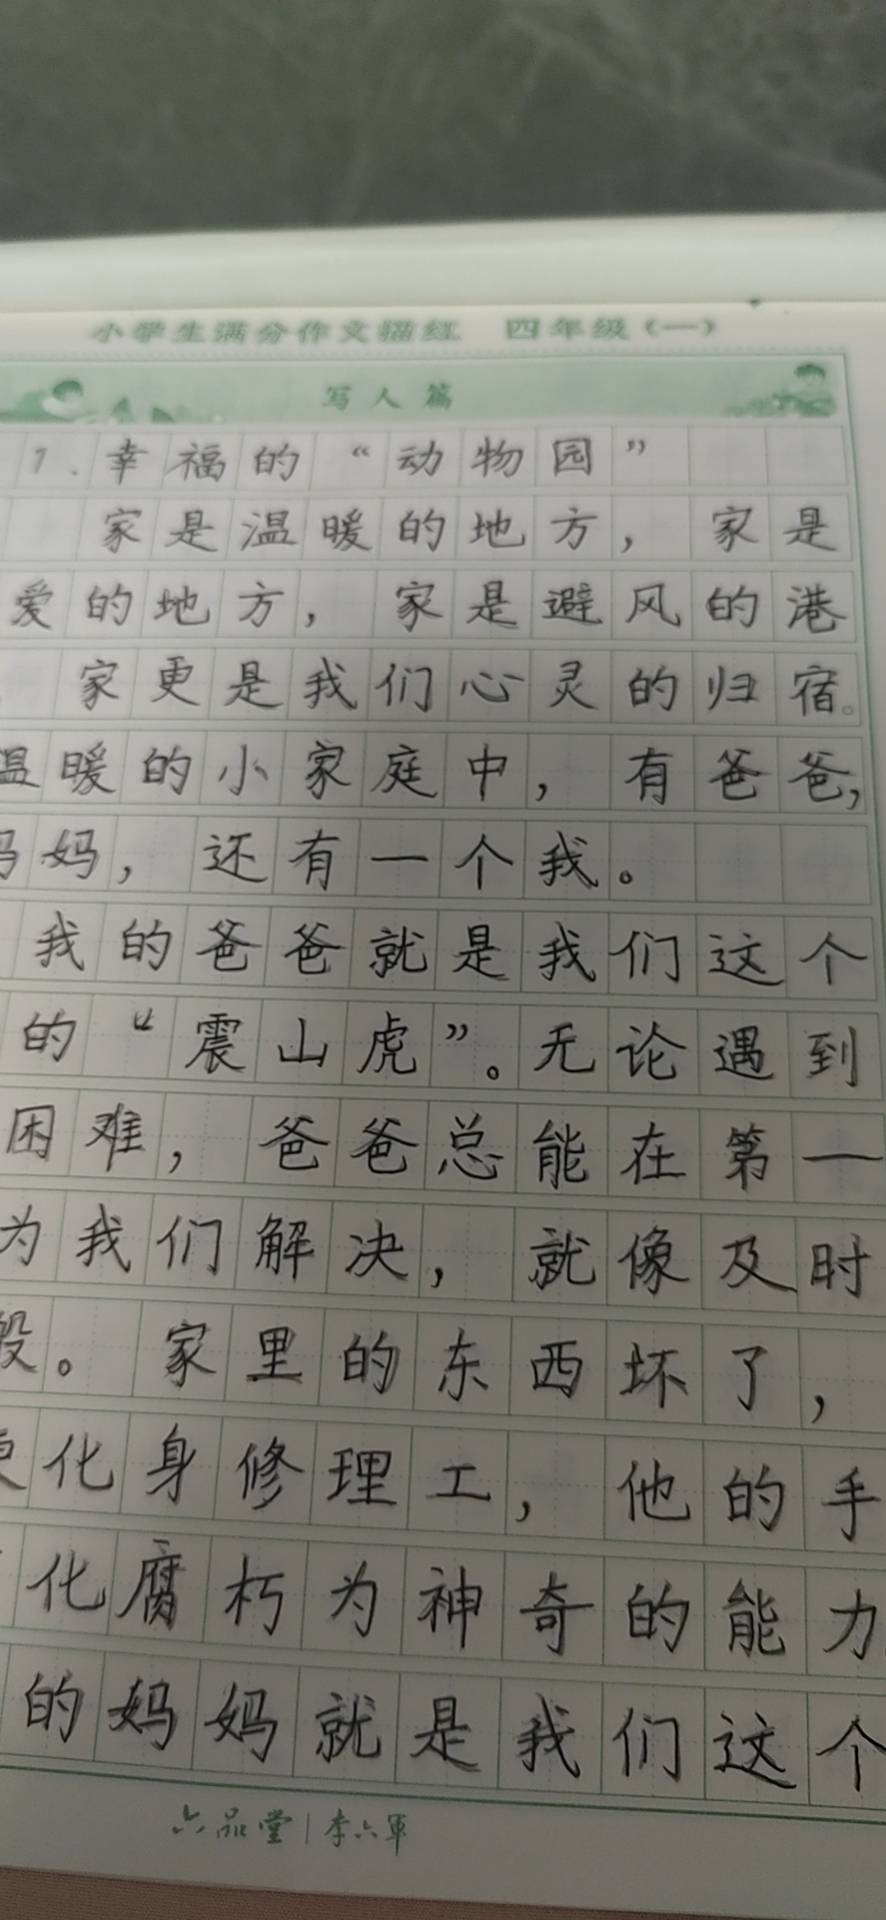 小学生满分作文描红 四年级（一）
写人篇
1、幸福的“动物园”
家是温暖的地方，家是
爱的地方，家是避风的港
家更是我们心灵的归宿。
温暖的小家庭中，有爸爸，
妈妈，还有一个我。
我的爸爸就是我们这个
的“震山虎”。无论遇到
困难，爸爸总能在第一
为我们解决，就像及时
般。家里的东西坏了，
化身修理工，他的手
化腐朽为神奇的能力
的妈妈就是我们这个
六品堂|李六军